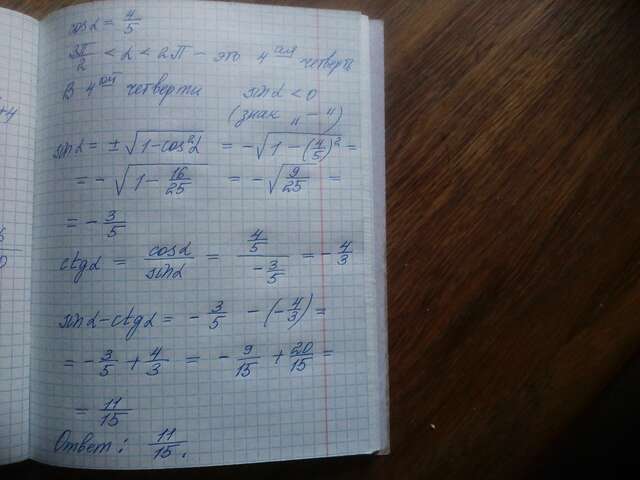 cosα = 4/5
3π/2 < α < 2π – это 4 ая четверть
В 4 ой четверти sinα < 0
(знак „ – ")
sinα = ± √(1-cos²α) = - √(1-(4/5)²) =
= - √(1-16/25) = - √(9/25) =
= - 3/5
ctgα = cosα/sinα = (4/5)/(-3/5) = - 4/3
sinα-ctgα = - 3/5 - (- 4/3) =
= - 3/5 + 4/3 = - 9/15 + 20/15 =
= 11/15
Ответ: 11/15.